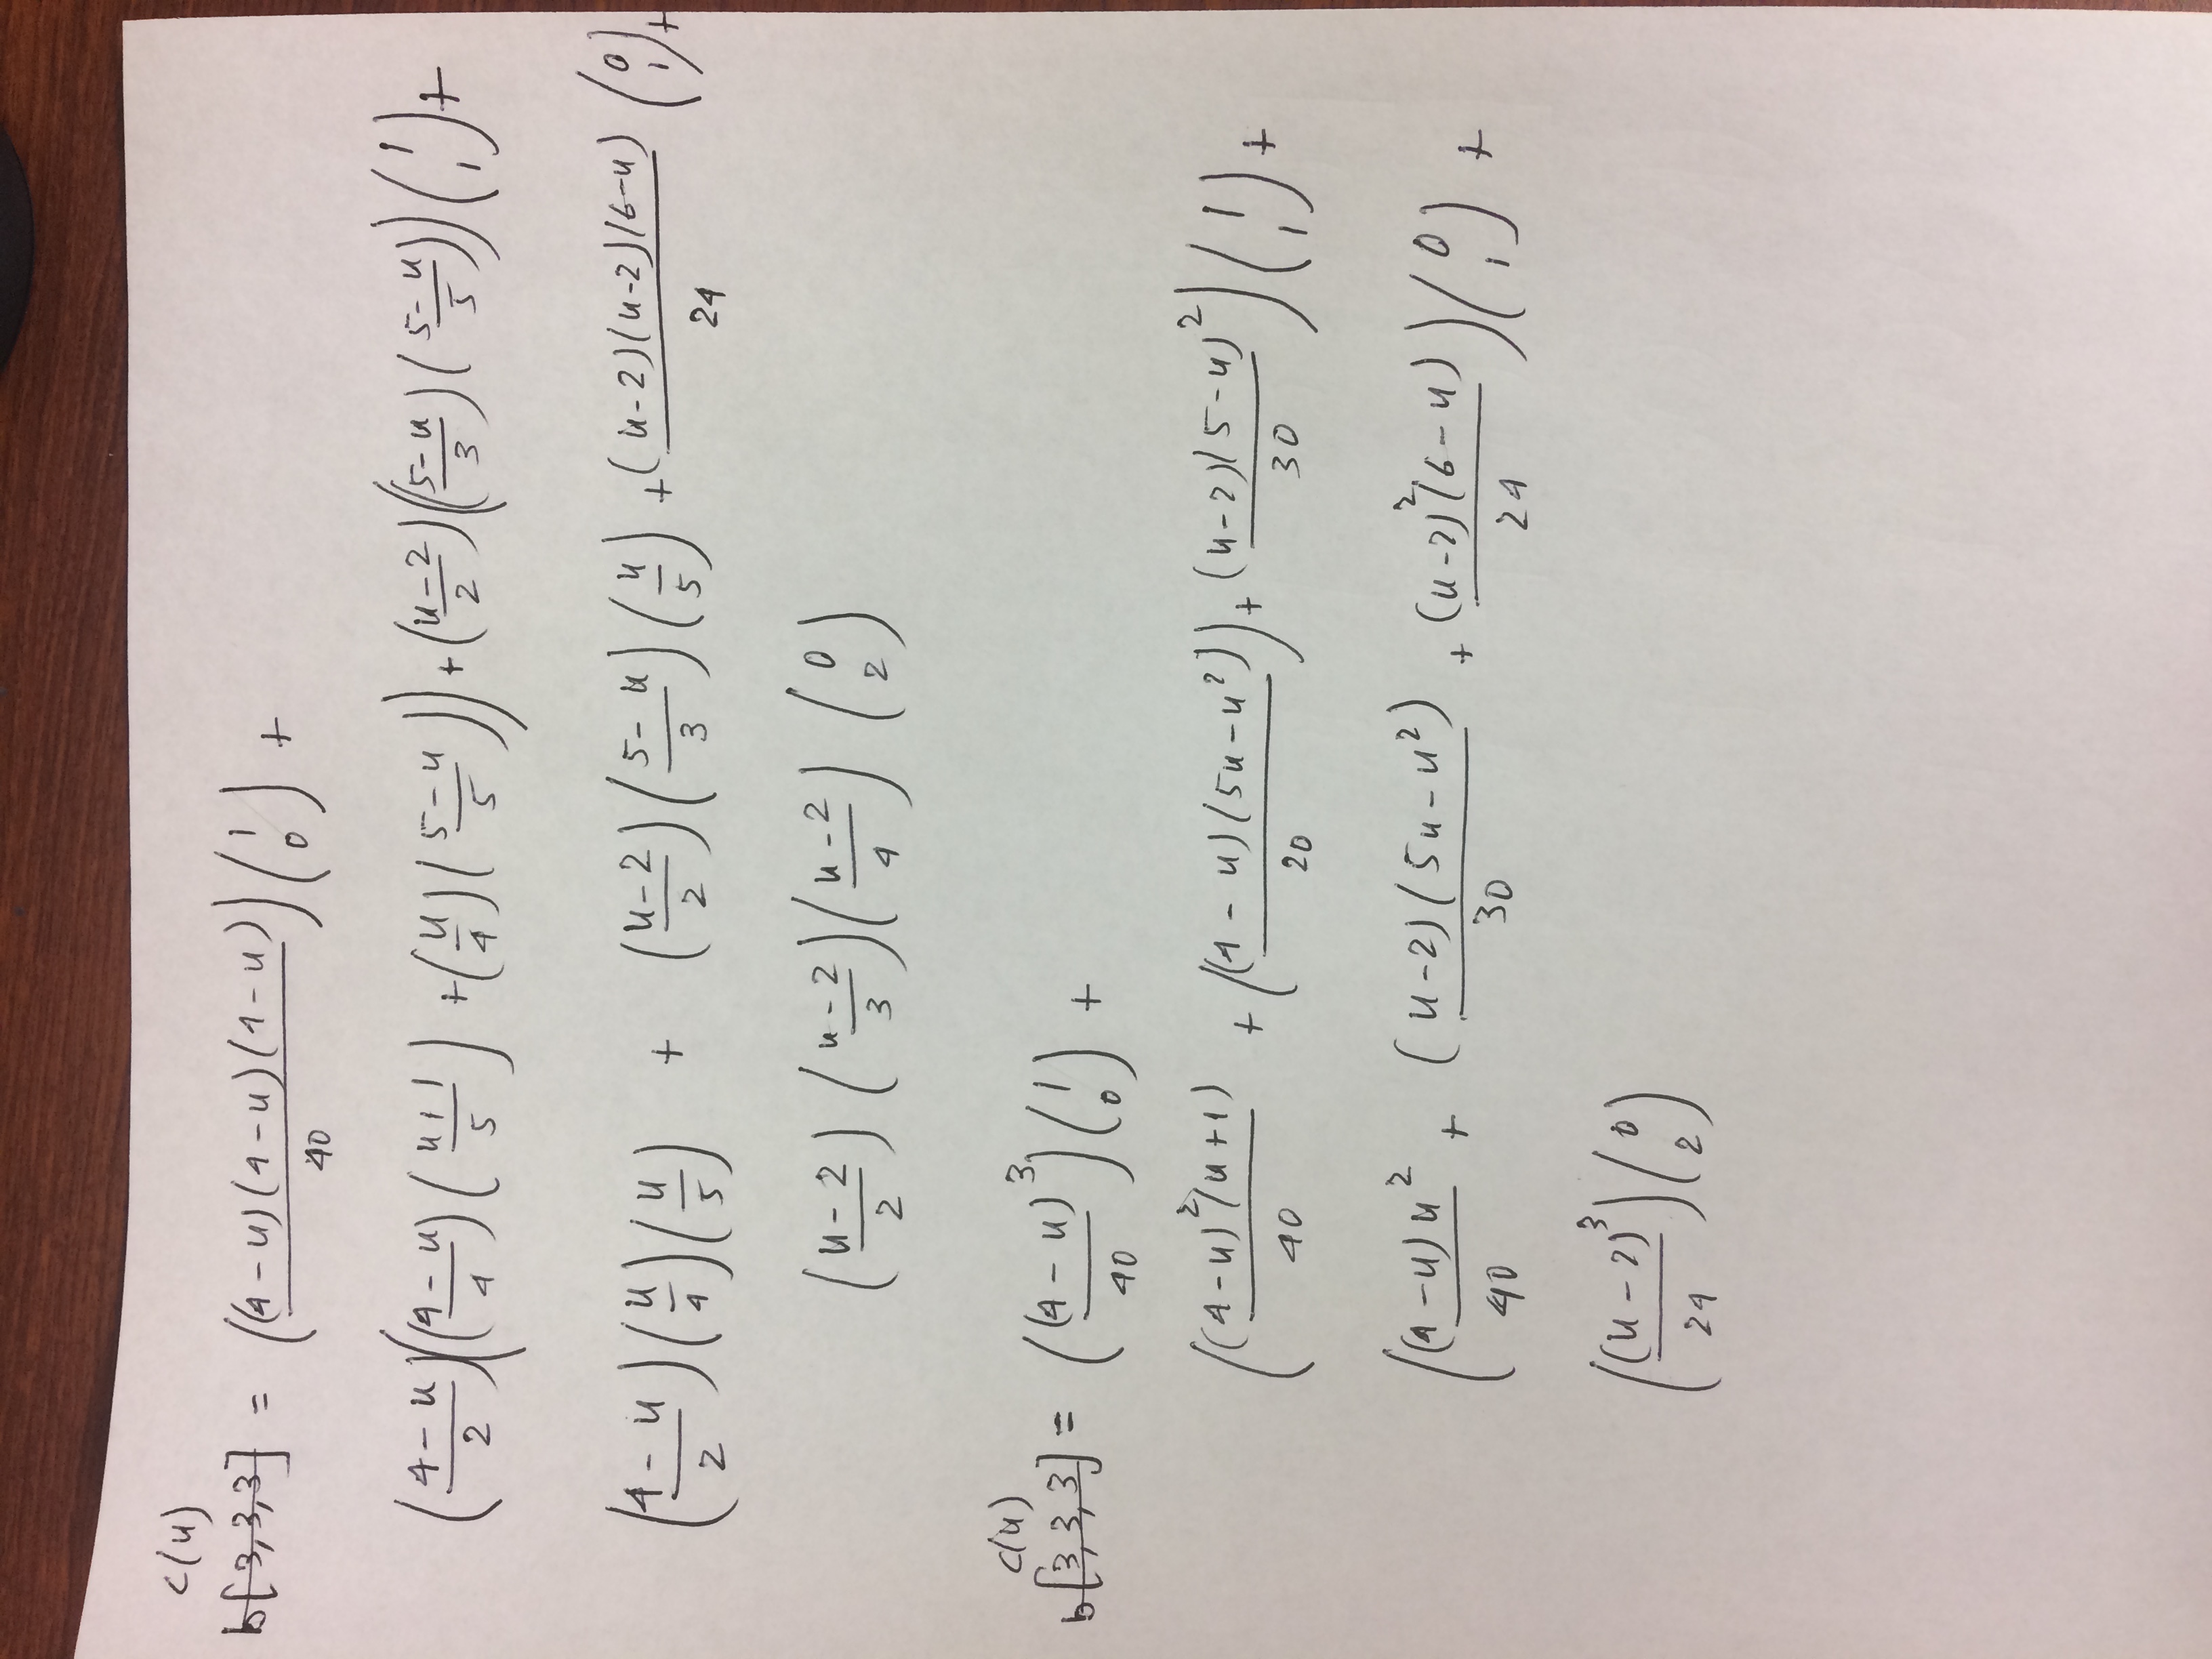 c(u)
b[3,3,3] = ((4-u)(4-u)(4-u)/40) (1 0) +
((4-u)/2)(((4-u)/4)((u+1)/5) + (u/4)((5-u)/5)) + ((u-2)/2)(((5-u)/3)((5-u)/5)) (1 1) +
((4-u)/2)(u/4)(u/5) + ((u-2)/2)((5-u)/3)(u/5) + (u-2)(u-2)(6-u)/24 (0 1) +
((u-2)/2)((u-2)/3)((u-2)/4) (0 2)
c(u)
b[3,3,3] = ((4-u)³/40) (1 0) +
((4-u)²(u+1)/40 + ((4-u)(5u-u²)/20) + (u-2)(5-u)²/30) (1 1) +
((4-u)u²/40 + (u-2)(5u-u²)/30 + (u-2)²(6-u)/24) (0 1) +
((u-2)³/24) (0 2)